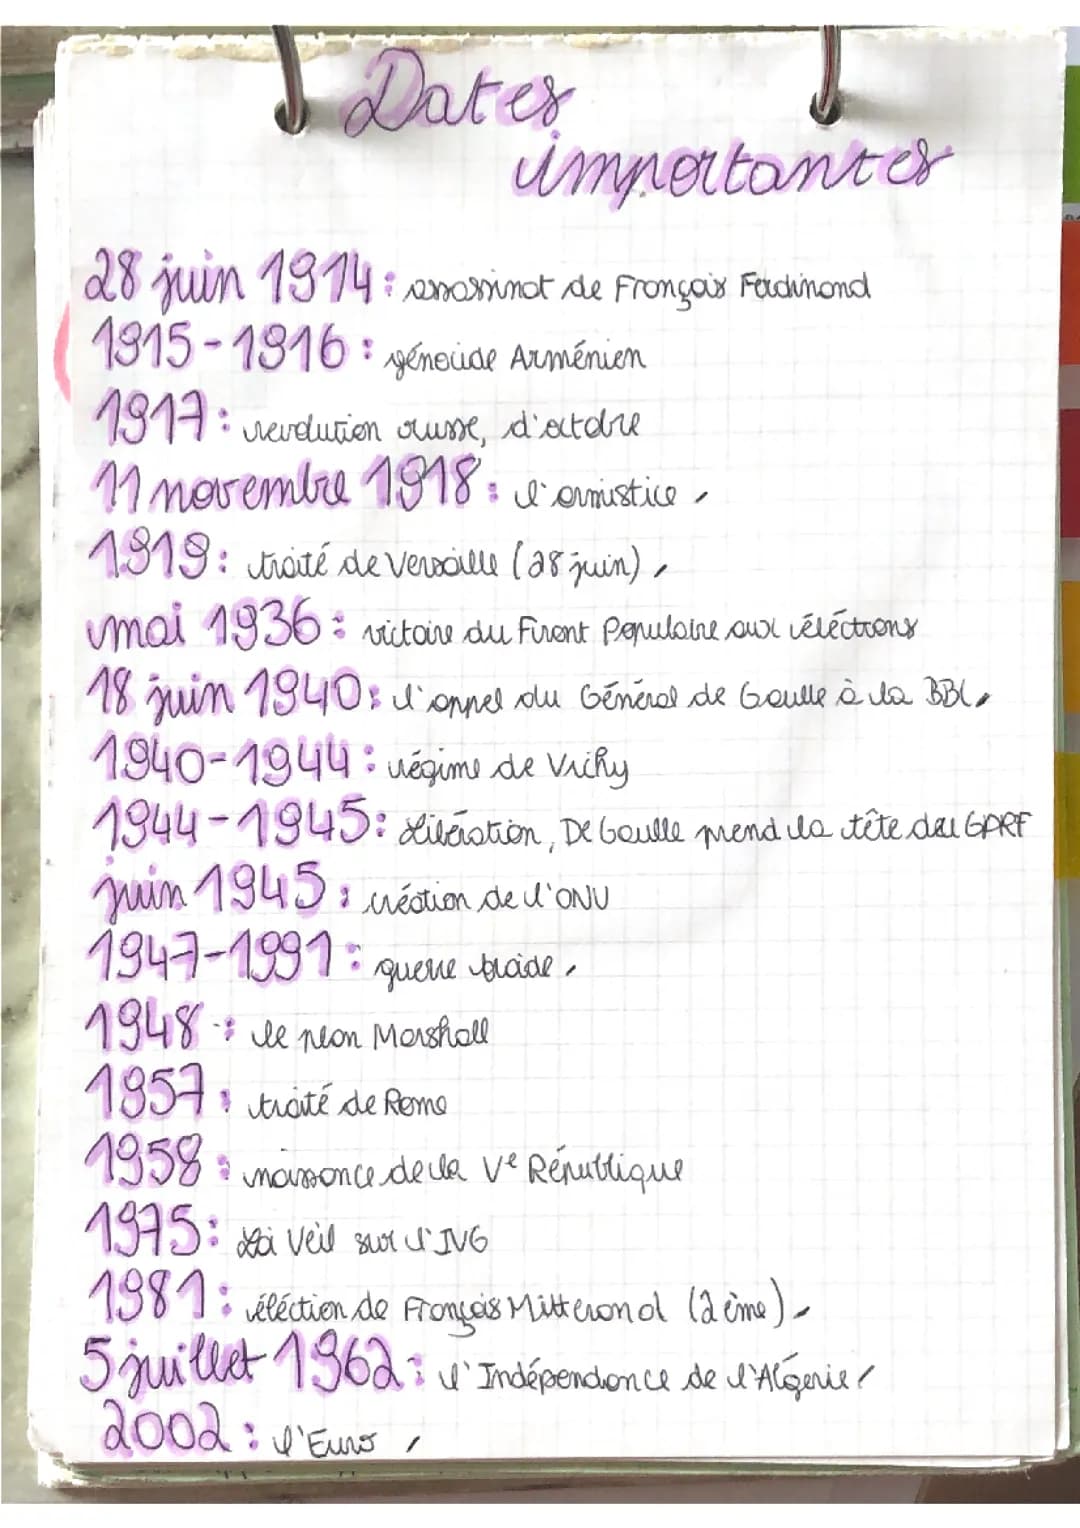 Dates
importantes
28 juin 1914 : assassinat de François Ferdinand
1915-1916 : génocide Arménien
1917 : revolution russe, d'octobre
11 novembre 1918 : l'armistice
1919 : traité de Versaille (28 juin)
mai 1936 : victoire du Front Populaire aux éléctions
18 juin 1940 : l'appel du Général de Gaulle à la BBC
1940-1944 : régime de Vichy
1944-1945 : Libération, De Gaulle prend la tête du GPRF
juin 1945 : création de l'ONU
1947-1991 : guerre froide
1948 : le plan Marshall
1957 : traité de Rome
1958 : naissance de la Ve République
1975 : Loi Veil sur l'IVG
1981 : éléction de François Mitterand (2ème)
5 juillet 1962 : l'Indépendance de l'Algérie
2002 : l'Euro